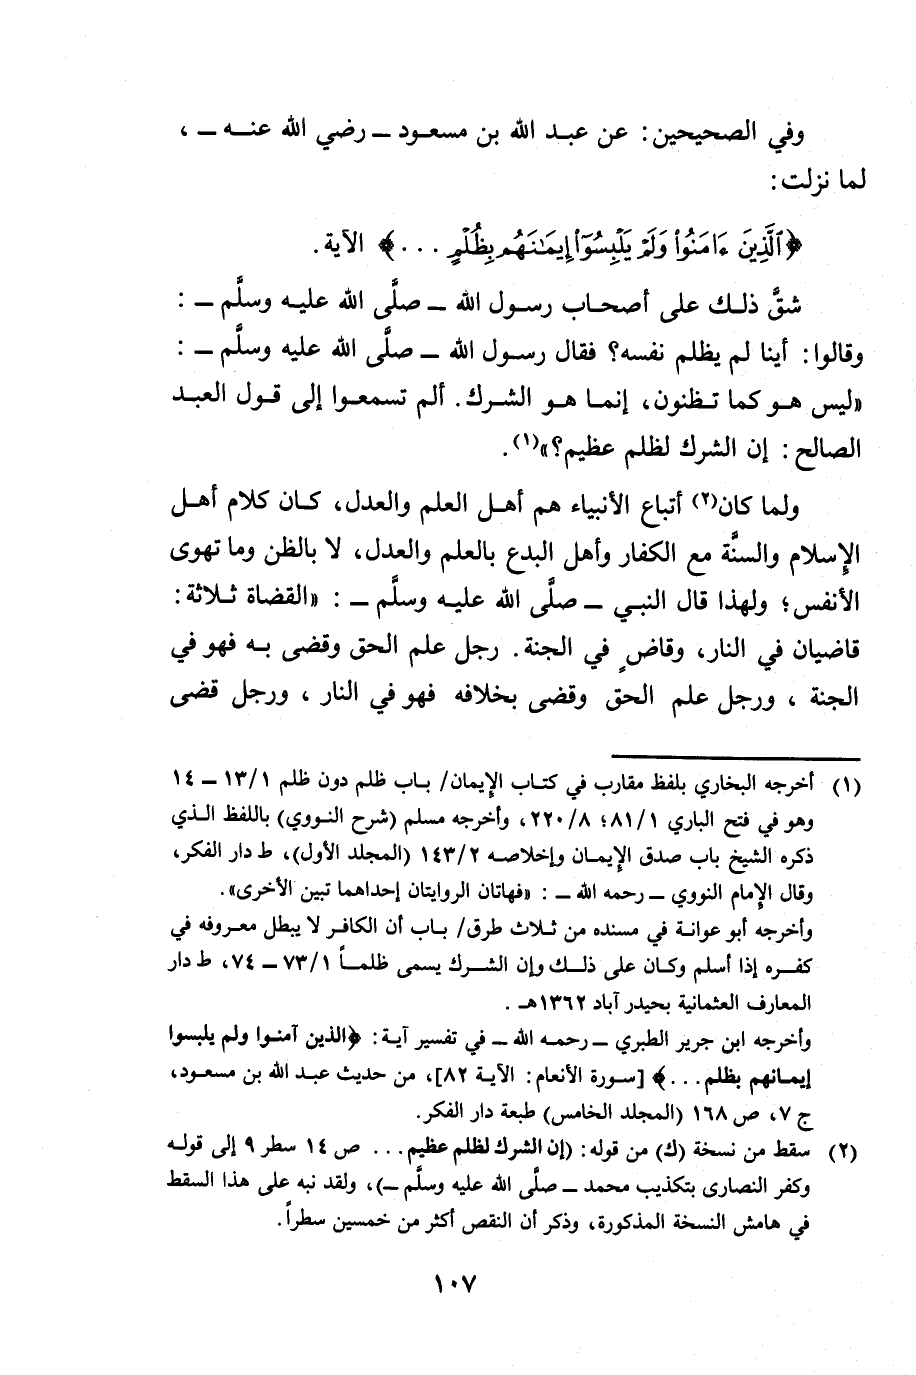 وفي الصحيحين: عن عبد الله بن مسعود ــ رضي الله عنه ــ ،
لما نزلت:
﴿ٱلَّذِينَ ءَامَنُوا۟ وَلَمْ يَلْبِسُوٓا۟ إِيمَـٰنَهُم بِظُلْمٍ ...﴾ الآية.
شقَّ ذلك على أصحاب رسول الله ــ صلَّى الله عليه وسلَّم ــ :
وقالوا: أينا لم يظلم نفسه؟ فقال رسول الله ــ صلَّى الله عليه وسلَّم ــ :
«ليس هو كما تظنون، إنما هو الشرك. ألم تسمعوا إلى قول العبد
الصالح: إن الشرك لظلم عظيم؟»(١).
ولما كان(٢) أتباع الأنبياء هم أهل العلم والعدل، كان كلام أهل
الإسلام والسنَّة مع الكفار وأهل البدع بالعلم والعدل، لا بالظن وما تهوى
الأنفس؛ ولهذا قال النبي ــ صلَّى الله عليه وسلَّم ــ : «القضاة ثلاثة:
قاضيان في النار، وقاضٍ في الجنة. رجل علم الحق وقضى به فهو في
الجنة ، ورجل علم الحق وقضى بخلافه فهو في النار ، ورجل قضى
(١) أخرجه البخاري بلفظ مقارب في كتاب الإيمان/ باب ظلم دون ظلم ١/‏١٣ ــ ١٤
وهو في فتح الباري ١/‏٨١؛ ٨/‏٢٢٠، وأخرجه مسلم (شرح النووي) باللفظ الذي
ذكره الشيخ باب صدق الإيمان وإخلاصه ٢/‏١٤٣ (المجلد الأول)، ط دار الفكر،
وقال الإمام النووي ــ رحمه الله ــ : «فهاتان الروايتان إحداهما تبين الأخرى».
وأخرجه أبو عوانة في مسنده من ثلاث طرق/ باب أن الكافر لا يبطل معروفه في
كفره إذا أسلم وكان على ذلك وإن الشرك يسمى ظلماً ١/‏٧٣ ــ ٧٤، ط دار
المعارف العثمانية بحيدر آباد ١٣٦٢هـ .
وأخرجه ابن جرير الطبري ــ رحمه الله ــ في تفسير آية: ﴿الذين آمنوا ولم يلبسوا
إيمانهم بظلم...﴾ [سورة الأنعام: الآية ٨٢]، من حديث عبد الله بن مسعود،
ج ٧، ص ١٦٨ (المجلد الخامس) طبعة دار الفكر.
(٢) سقط من نسخة (ك) من قوله: (إن الشرك لظلم عظيم... ص ١٤ سطر ٩ إلى قوله
وكفر النصارى بتكذيب محمد ــ صلَّى الله عليه وسلَّم ــ)، ولقد نبه على هذا السقط
في هامش النسخة المذكورة، وذكر أن النقص أكثر من خمسين سطراً.
١٠٧